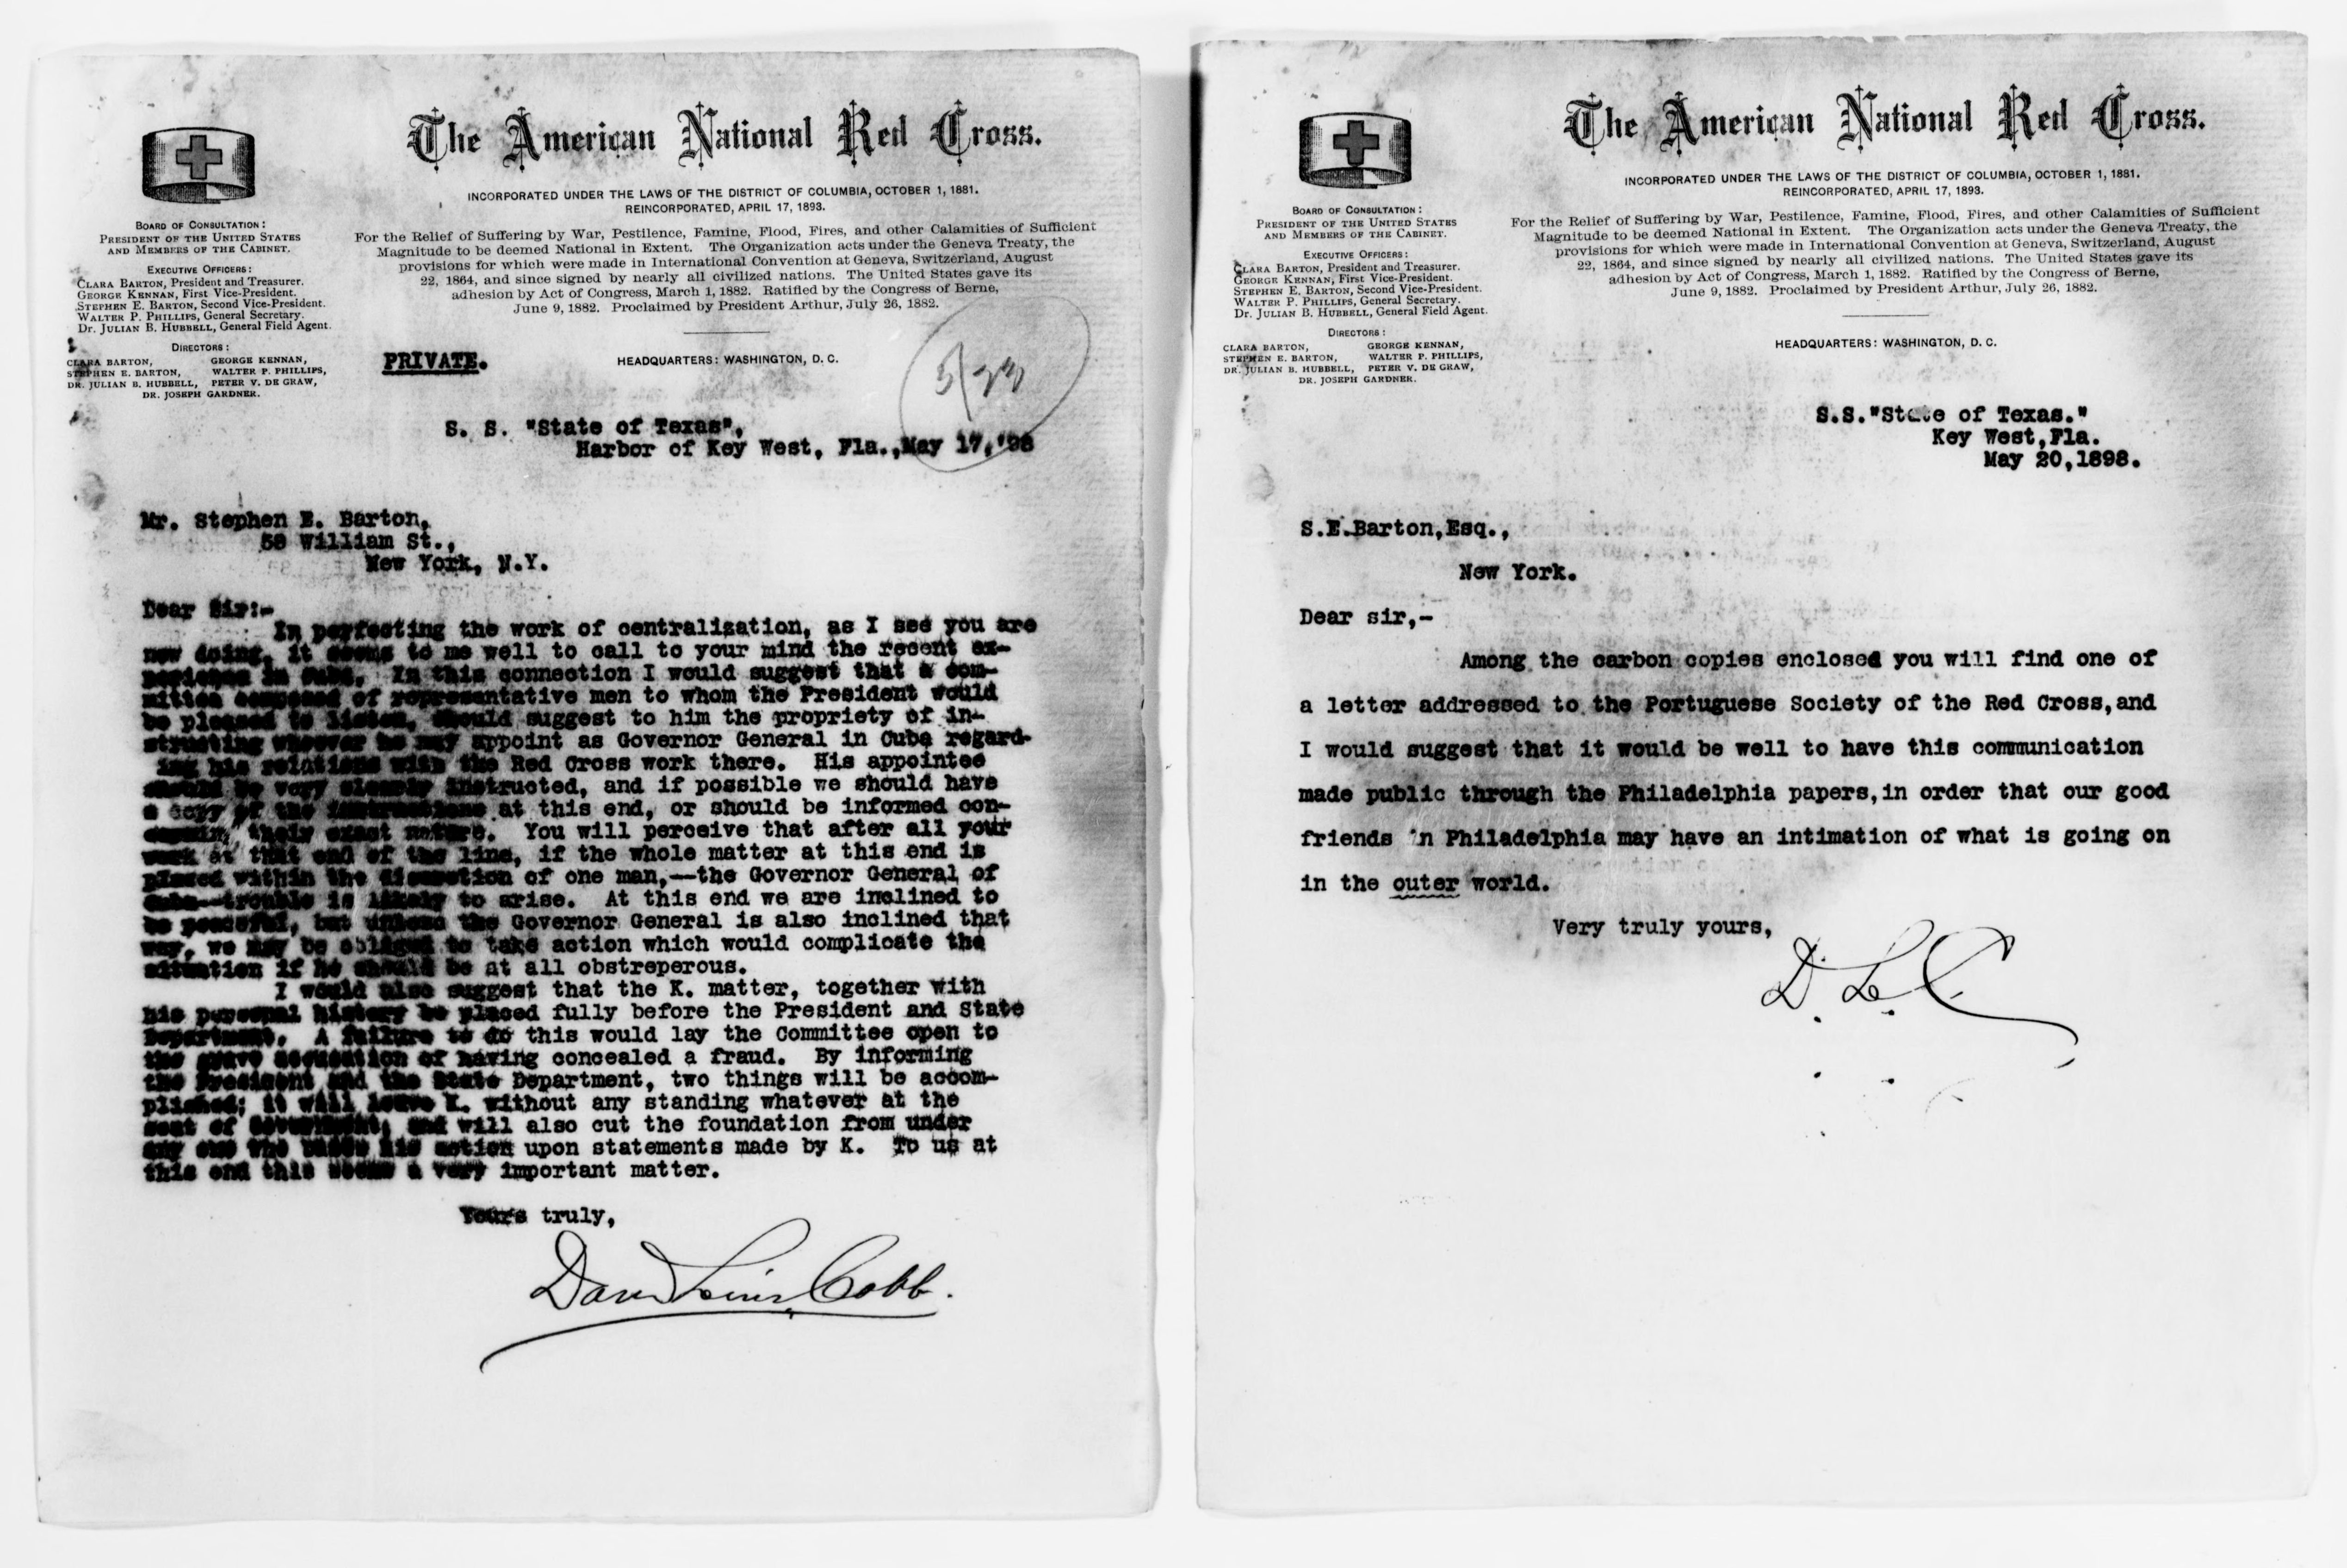 The American National Red Cross.
INCORPORATED UNDER THE LAWS OF THE DISTRICT OF COLUMBIA, OCTOBER 1, 1881.
REINCORPORATED, APRIL 17, 1893.
For the Relief of Suffering by War, Pestilence, Famine, Flood, Fires, and other Calamities of Sufficient
Magnitude to be deemed National in Extent. The Organization acts under the Geneva Treaty, the
provisions for which were made in International Convention at Geneva, Switzerland, August
22, 1864, and since signed by nearly all civilized nations. The United States gave its
adhesion by Act of Congress, March 1, 1882. Ratified by the Congress of Berne,
June 9, 1882. Proclaimed by President Arthur, July 26, 1882.
BOARD OF CONSULTATION:
PRESIDENT OF THE UNITED STATES
AND MEMBERS OF THE CABINET.
EXECUTIVE OFFICERS:
CLARA BARTON, President and Treasurer.
GEORGE KENNAN, First Vice-President.
STEPHEN E. BARTON, Second Vice-President.
WALTER P. PHILLIPS, General Secretary.
Dr. JULIAN B. HUBBELL, General Field Agent.
DIRECTORS:
CLARA BARTON, GEORGE KENNAN,
STEPHEN E. BARTON, WALTER P. PHILLIPS,
DR. JULIAN B. HUBBELL, PETER V. DE GRAW,
DR. JOSEPH GARDNER.
PRIVATE.
HEADQUARTERS: WASHINGTON, D. C.
S. S. "State of Texas",
Harbor of Key West, Fla., May 17, '98
Mr. Stephen E. Barton,
58 William St.,
New York, N.Y.
Dear Sir:-
In perfecting the work of centralization, as I see you are
now doing, it seems to me well to call to your mind the recent ex-
perience in Cuba. In this connection I would suggest that a com-
mittee composed of representative men to whom the President would
be pleased to listen, should suggest to him the propriety of in-
structing whoever he may appoint as Governor General in Cuba regard-
ing his relations with the Red Cross work there. His appointee
should be very clearly instructed, and if possible we should have
a copy of the instructions at this end, or should be informed con-
cerning their exact nature. You will perceive that after all your
work at that end of the line, if the whole matter at this end is
placed within the discretion of one man,--the Governor General of
Cuba--trouble is likely to arise. At this end we are inclined to
be peaceful, but unless the Governor General is also inclined that
way, we may be obliged to take action which would complicate the
situation if he should be at all obstreperous.
I would also suggest that the K. matter, together with
his personal history be placed fully before the President and State
Department. A failure to do this would lay the Committee open to
the grave accusation of having concealed a fraud. By informing
the President and the State Department, two things will be accom-
plished; it will leave K. without any standing whatever at the
seat of Government, and will also cut the foundation from under
any one who bases his action upon statements made by K. To us at
this end this seems a very important matter.
Yours truly,
Cobb.
The American National Red Cross.
INCORPORATED UNDER THE LAWS OF THE DISTRICT OF COLUMBIA, OCTOBER 1, 1881.
REINCORPORATED, APRIL 17, 1893.
For the Relief of Suffering by War, Pestilence, Famine, Flood, Fires, and other Calamities of Sufficient
Magnitude to be deemed National in Extent. The Organization acts under the Geneva Treaty, the
provisions for which were made in International Convention at Geneva, Switzerland, August
22, 1864, and since signed by nearly all civilized nations. The United States gave its
adhesion by Act of Congress, March 1, 1882. Ratified by the Congress of Berne,
June 9, 1882. Proclaimed by President Arthur, July 26, 1882.
BOARD OF CONSULTATION:
PRESIDENT OF THE UNITED STATES
AND MEMBERS OF THE CABINET.
EXECUTIVE OFFICERS:
CLARA BARTON, President and Treasurer.
GEORGE KENNAN, First Vice-President.
STEPHEN E. BARTON, Second Vice-President.
WALTER P. PHILLIPS, General Secretary.
Dr. JULIAN B. HUBBELL, General Field Agent.
DIRECTORS:
CLARA BARTON, GEORGE KENNAN,
STEPHEN E. BARTON, WALTER P. PHILLIPS,
DR. JULIAN B. HUBBELL, PETER V. DE GRAW,
DR. JOSEPH GARDNER.
HEADQUARTERS: WASHINGTON, D. C.
S.S."State of Texas."
Key West,Fla.
May 20,1898.
S.E.Barton,Esq.,
New York.
Dear sir,-
Among the carbon copies enclosed you will find one of
a letter addressed to the Portuguese Society of the Red Cross,and
I would suggest that it would be well to have this communication
made public through the Philadelphia papers,in order that our good
friends in Philadelphia may have an intimation of what is going on
in the outer world.
Very truly yours,
D. L. C.